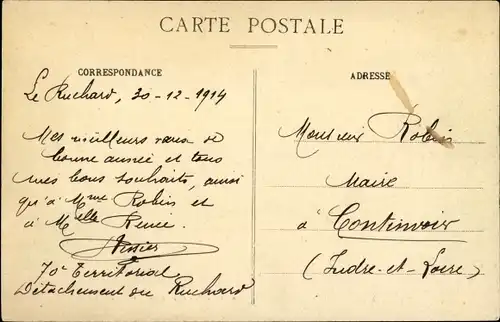 CARTE POSTALE
CORRESPONDANCE
Le Ruchard, 30-12-1914
Mes meilleurs vœux de
bonne année et tous
mes bons souhaits, ainsi
qu'à Mme Robin et
à Melle Renée.
70e Territorial
Détachement du Ruchard
ADRESSE
Monsieur Robin
Maire
à Continvoir
(Indre-et-Loire)